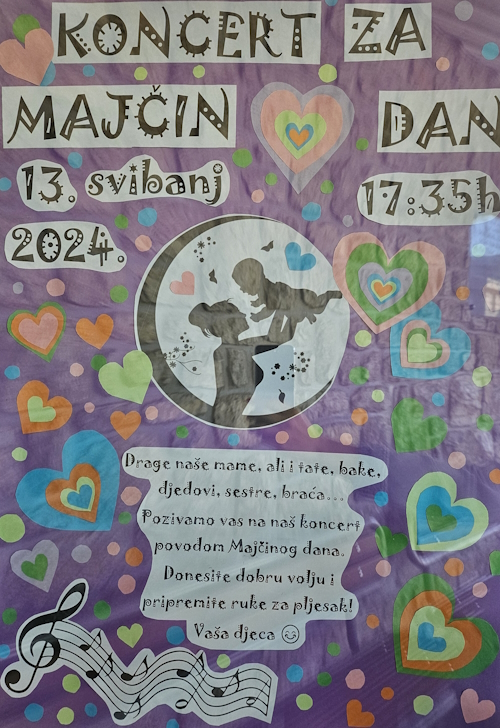 KONCERT ZA
MAJČIN DAN
13. svibanj
17:35h
2024.
Drage naše mame, ali i tate, bake,
djedovi, sestre, braća...
Pozivamo vas na naš koncert
povodom Majčinog dana.
Donesite dobru volju i
pripremite ruke za pljesak!
Vaša djeca ☺